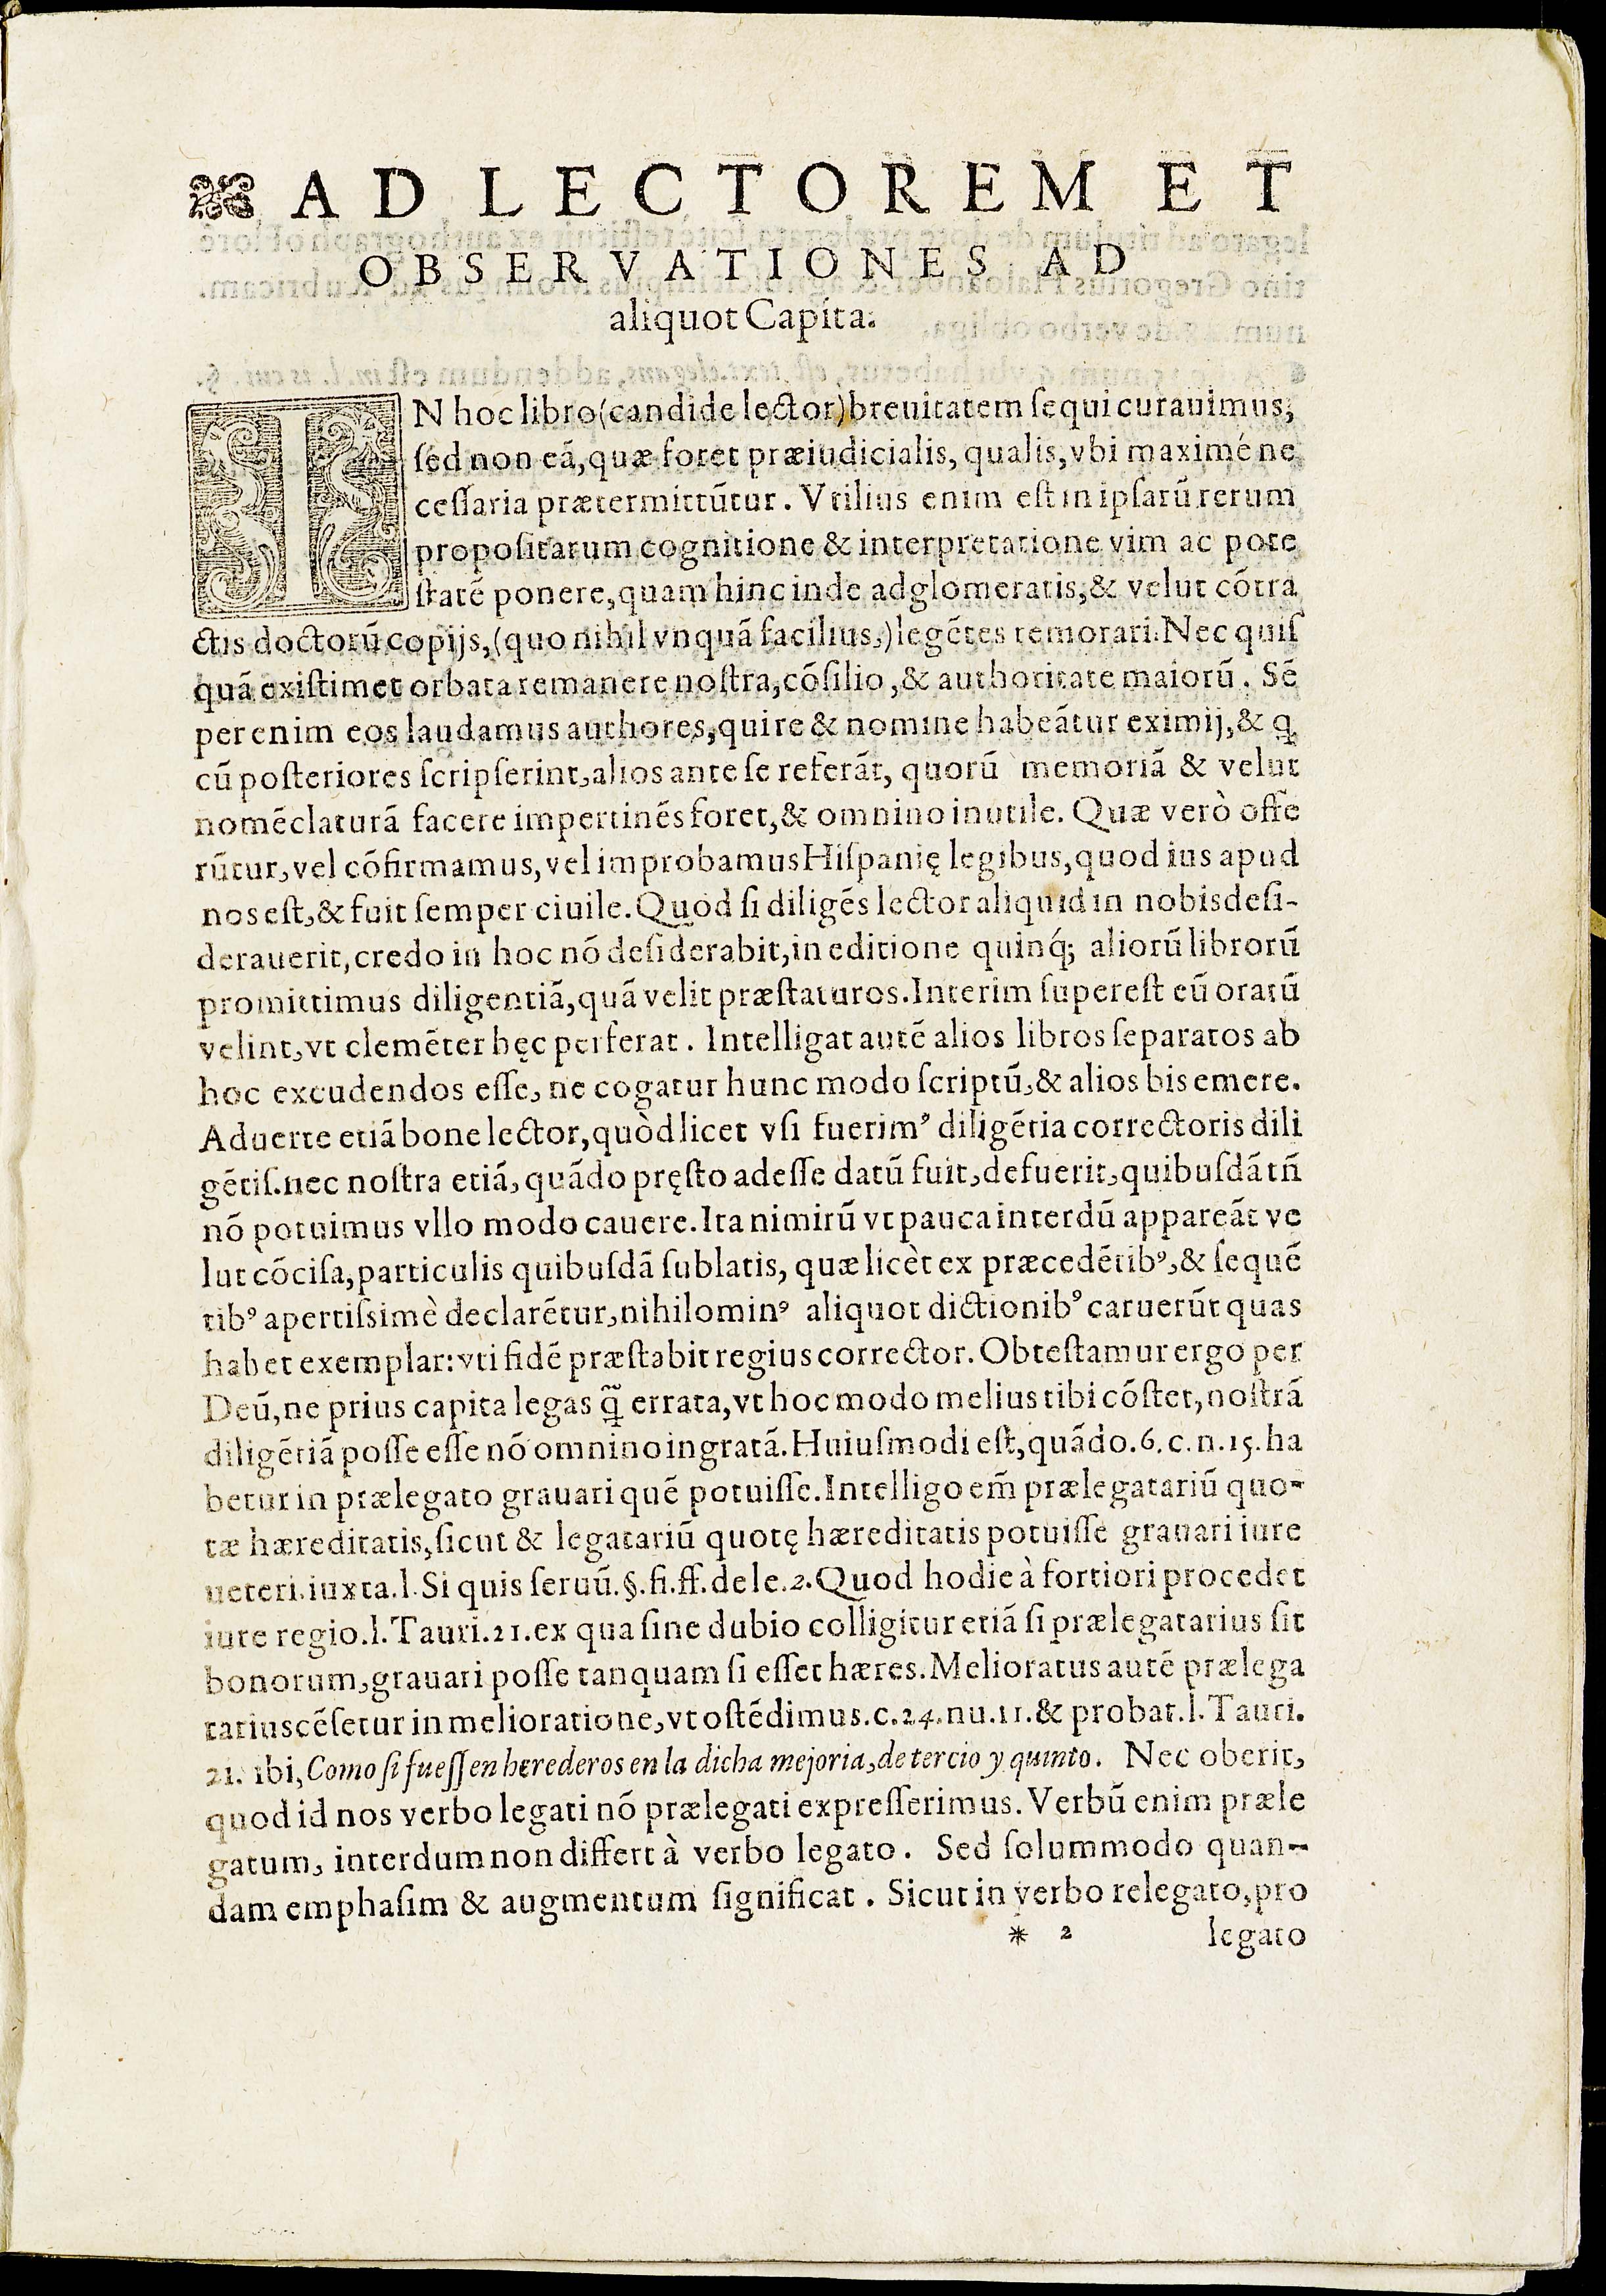 AD LECTOREM ET
OBSERVATIONES AD
aliquot Capita.
IN hoc libro (candide lector) breuitatem ſequi curauimus,
ſed non eã, quæ foret præiudicialis, qualis, vbi maximé ne
ceſſaria prætermittũtur. Vtilius enim eſt in ipſarũ rerum
propoſitarum cognitione & interpretatione vim ac pote
ſtatẽ ponere, quam hinc inde adglomeratis, & velut cõtra
ctis doctorũ copijs, (quo nihil vnquã facilius,) legẽtes remorari. Nec quiſ
quã exiſtimet orbata remanere noſtra, cõſilio, & authoritate maiorũ. Sẽ
per enim eos laudamus authores, qui re & nomine habeãtur eximij, & ꝗ
cũ poſteriores ſcripſerint, alios ante ſe referãt, quorũ memoriã & velut
nomẽclaturã facere impertinẽs foret, & omnino inutile. Quæ verò offe
rũtur, vel cõfirmamus, vel improbamus Hiſpanię legibus, quod ius apud
nos eſt, & fuit ſemper ciuile. Quòd ſi diligẽs lector aliquid in nobis deſi-
derauerit, credo in hoc nõ deſiderabit, in editione quinq́; aliorũ librorũ
promittimus diligentiã, quã velit præſtaturos. Interim ſupereſt eũ oratũ
velint, vt clemẽter hęc perferat. Intelligat autẽ alios libros ſeparatos ab
hoc excudendos eſſe, ne cogatur hunc modo ſcriptũ, & alios bis emere.
Aduerte etiã bone lector, quòd licet vſi fuerimꝰ diligẽtia correctoris dili
gẽtiſ. nec noſtra etiã, quãdo pręſto adeſſe datũ fuit, defuerit, quibuſdã tñ
nõ potuimus vllo modo cauere. Ita nimirũ vt pauca interdũ appareãt ve
lut cõciſa, particulis quibuſdã ſublatis, quæ licèt ex præcedẽtibꝰ, & ſequẽ
tibꝰ apertiſsimè declarẽtur, nihilominꝰ aliquot dictionibꝰ caruerũt quas
habet exemplar: vti fidẽ præſtabit regius corrector. Obteſtamur ergo per
Deũ, ne prius capita legas ꝗ̃ errata, vt hoc modo melius tibi cõſtet, noſtrã
diligẽtiã poſſe eſſe nõ omnino ingratã. Huiuſmodi eſt, quãdo. 6. c. n. 15. ha
betur in prælegato grauari quẽ potuiſſe. Intelligo em̃ prælegatariũ quo-
tæ hæreditatis, ſicut & legatariũ quotę hæreditatis potuiſſe grauari iure
ueteri. iuxta. l. Si quis ſeruũ. §. fi. ff. de le. 2. Quod hodie à fortiori procedet
iure regio. l. Tauri. 21. ex qua ſine dubio colligitur etiã ſi prælegatarius ſit
bonorum, grauari poſſe tanquam ſi eſſet hæres. Melioratus autẽ prælega
tarius cẽſetur in melioratione, vt oſtẽdimus. c. 24. nu. 11. & probat. l. Tauri.
21. ibi, Como ſi fueſſen herederos en la dicha mejoria, de tercio y quinto. Nec oberit,
quod id nos verbo legati nõ prælegati expreſſerimus. Verbũ enim præle
gatum, interdum non differt à verbo legato. Sed ſolummodo quan-
dam emphaſim & augmentum ſignificat. Sicut in verbo relegato, pro
* 2 legato